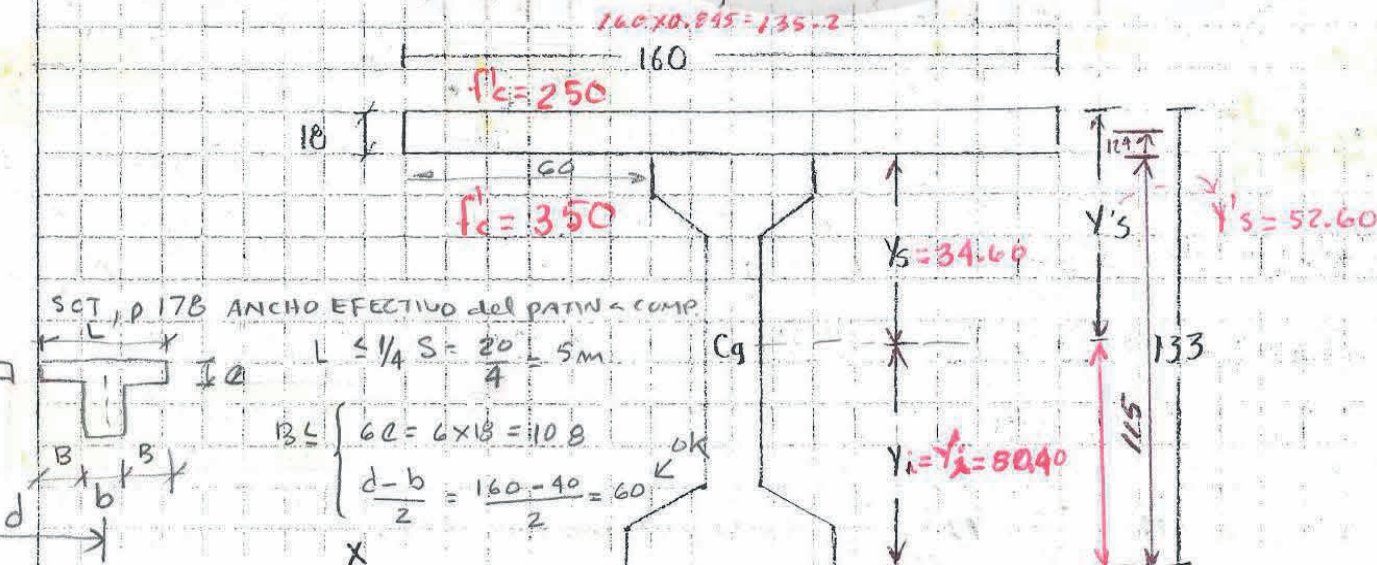 160x0.845=135.2
160
f'c=250
18
60
f'c=350
Ys=34.60
Y's
Y's=52.60
SCT, p 178 ANCHO EFECTIVO del PATIN a COMP.
L
L ≤ 1/4 S = 20/4 = 5m
e
Cg
133
115
B ≤ { 6e = 6x18 = 108
(d-b)/2 = (160-40)/2 = 60 OK
B b B
d
Yi=Y'i=80.40
X